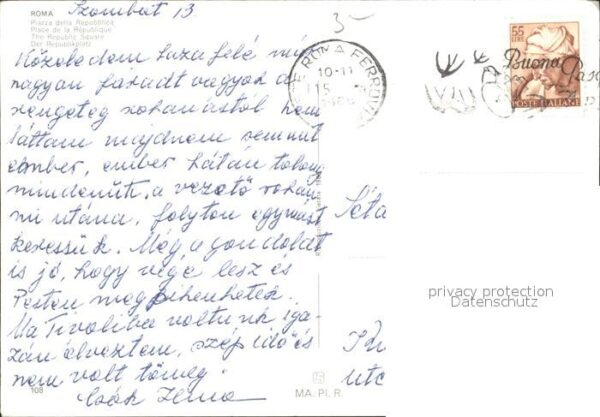 Szombat 13
ROMA
Piazza della Repubblica
Place de la République
The Republic Square
Der Republikplatz
Közeledem haza felé már
nagyon fáradt vagyok a
rengeteg rohanástól nem
láttam majdnem semmit
ember, ember hátán tolong
mindenütt, a vezető rohan
mi utána, folyton egymást
keressük. Még a gondolat
is jó, hogy vége lesz és
Pesten megpihenhetek.
Ma Tivoliba voltunk iga-
zán élveztem, szép idő és
nem volt tömeg.
Csák Ilma
108
MA. PI. R.
ROMA FERROVIA
10-11
55
Buona Pas
POSTE ITALIANE
Séta
utc
privacy protection
Datenschutz